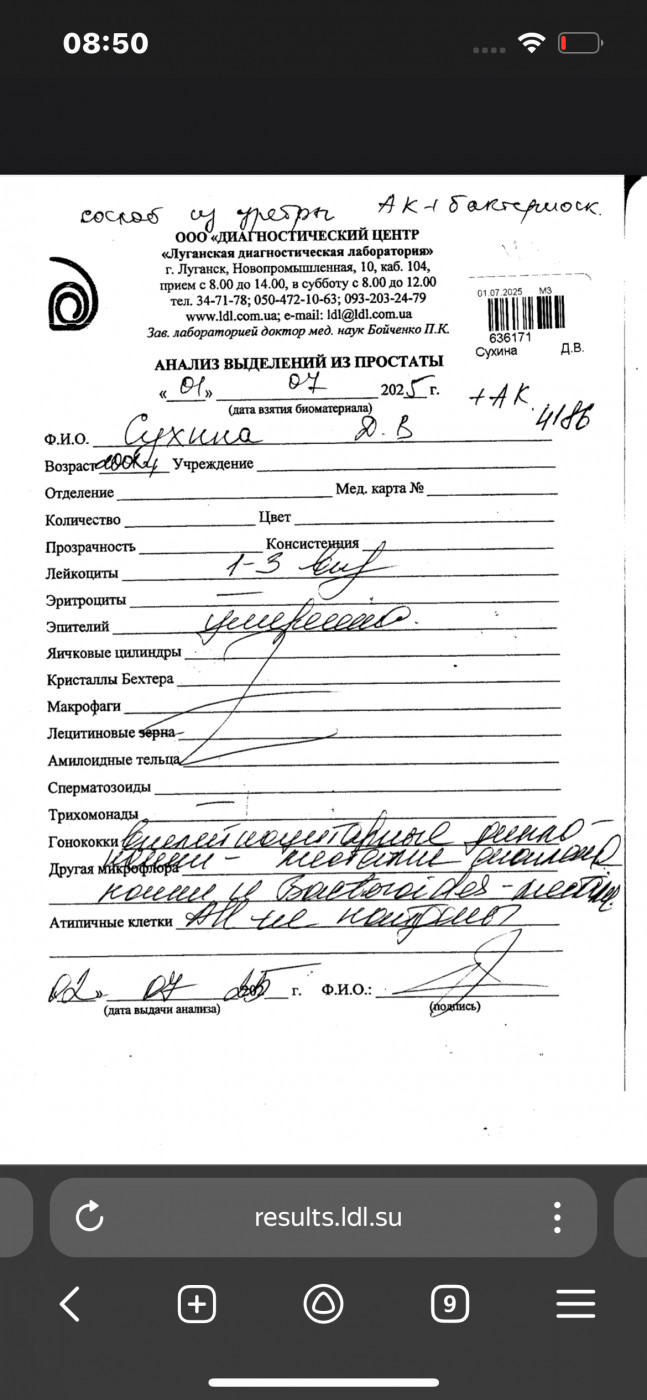 08:50
соскоб из уретры АК+бактериоск.
ООО «ДИАГНОСТИЧЕСКИЙ ЦЕНТР
«Луганская диагностическая лаборатория»
г. Луганск, Новопромышленная, 10, каб. 104,
прием с 8.00 до 14.00, в субботу с 8.00 до 12.00
тел. 34-71-78; 050-472-10-63; 093-203-24-79
www.ldl.com.ua; e-mail: ldl@ldl.com.ua
Зав. лабораторией доктор мед. наук Бойченко П.К.
01.07.2025 МЗ
636171
Сухина Д.В.
АНАЛИЗ ВЫДЕЛЕНИЙ ИЗ ПРОСТАТЫ
«01» 07 2025 г.
(дата взятия биоматериала)
+АК
4186
Ф.И.О. Сухина Д. В
Возраст Учреждение
Отделение Мед. карта №
Количество Цвет
Прозрачность Консистенция
Лейкоциты 1-3
Эритроциты —
Эпителий умеренно.
Яичковые цилиндры
Кристаллы Бехтера
Макрофаги
Лецитиновые зерна
Амилоидные тельца
Сперматозоиды
Трихомонады —
Гонококки внелейкоцитарные дипло-
Другая микрофлора кокки -
кокки и Bacteroides -
Атипичные клетки АК не найдены
02» 07 25 г. Ф.И.О.:
(дата выдачи анализа) (подпись)
results.ldl.su
9